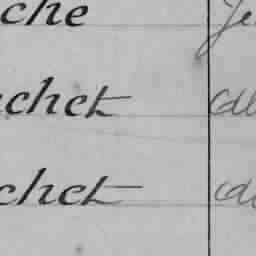 che Je
chet
chet